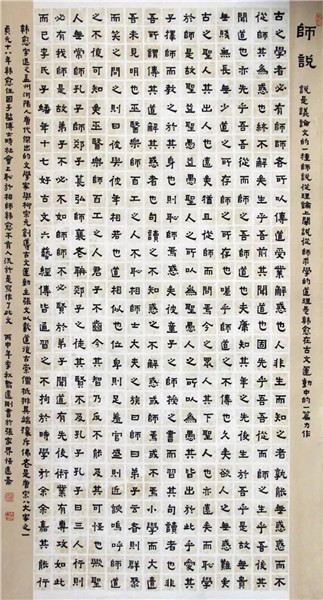 師說
說是議論文的一種師說從理論上闡說從師求學的道理是韓愈在古文運動中的一篇力作
古之學者必有師師者所以傳道受業解惑也人非生而知之者孰能無惑惑而不
從師其為惑也終不解矣生乎吾前其聞道也固先乎吾吾從而師之生乎吾後其
聞道也亦先乎吾吾從而師之吾師道也夫庸知其年之先後生於吾乎是故無貴
無賤無長無少道之所存師之所存也嗟乎師道之不傳也久矣欲人之無惑難矣
古之聖人其出人也遠矣猶且從師而問焉今之眾人其下聖人也亦遠矣而恥學
於師是故聖益聖愚益愚聖人之所以為聖愚人之所以為愚其皆出於此乎愛其
子擇師而教之於其身也則恥師焉惑矣彼童子之師授之書而習其句讀者也非
吾所謂傳其道解其惑者也句讀之不知惑之不解或師焉或不焉小學而大遺
吾未見明也巫醫樂師百工之人不恥相師士大夫之族曰師曰弟子云者則群聚
而笑之問之則曰彼與彼年相若也道相似也位卑則足羞官盛則近諛嗚呼師道
之不復可知矣巫醫樂師百工之人君子不齒今其智乃反不能及其可怪也歟聖
人無常師孔子師郯子萇弘師襄老聃郯子之徒其賢不及孔子孔子曰三人行則
必有我師是故弟子不必不如師師不必賢於弟子聞道有先後術業有專攻如此
而已李氏子蟠年十七好古文六藝經傳皆通習之不拘於時學於余余嘉其能行
韓愈字退之孟州河陽人唐代傑出的文學家與柳宗元創導古文運動主張文以載道復古崇儒抵排異端攘斥佛老是唐宋八大家之一
貞元十八年韓愈任國子監博士時社會上恥於相師韓愈不肯入流於是寫作了此文 丙申年季秋 書於張家界悟道齋